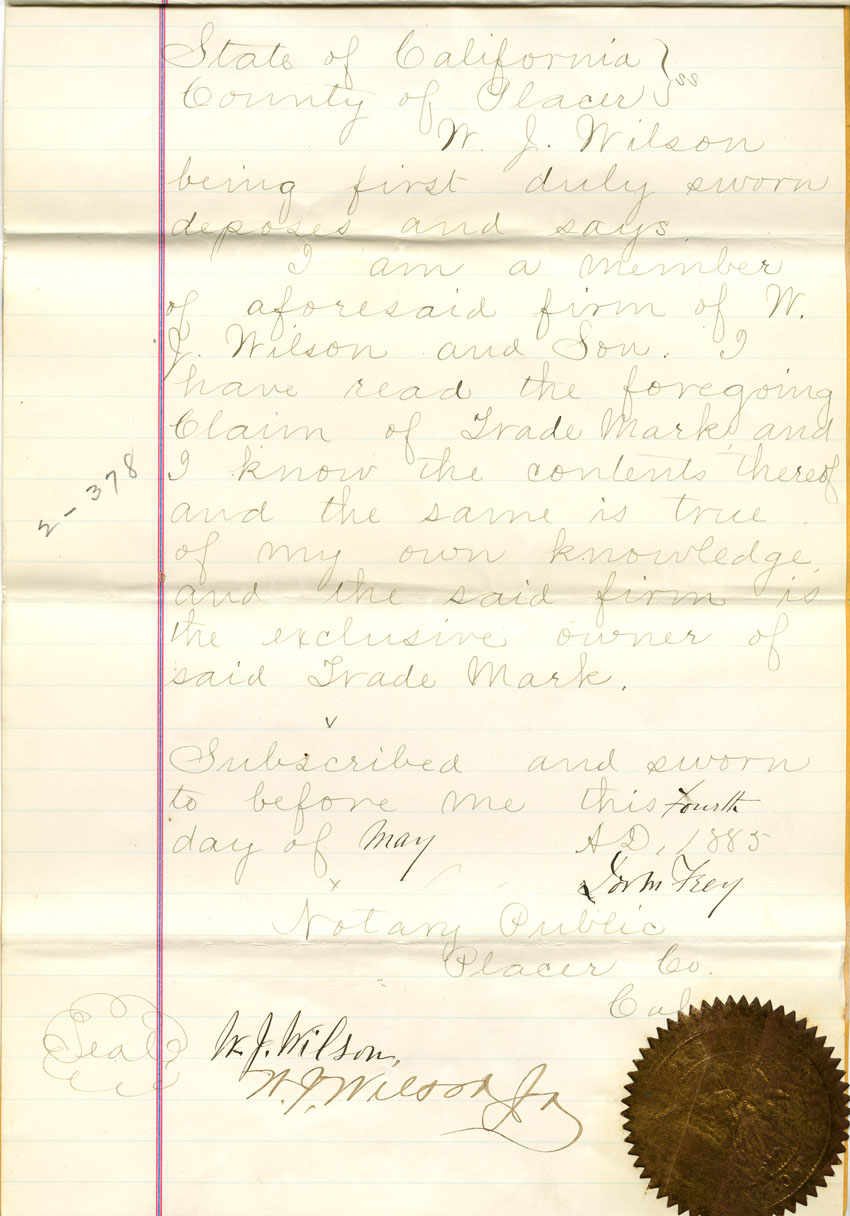 State of California }
County of Placer } ss
W. J. Wilson
being first duly sworn
deposes and says
I am a member
of aforesaid firm of W.
J. Wilson and Son. I
have read the foregoing
Claim of Trade Mark, and
I know the contents thereof
and the same is true
of my own knowledge,
and the said firm is
the exclusive owner of
said Trade Mark.
Subscribed and sworn
to before me this Fourth
day of May A.D. 1885
John Frey
Notary Public
Placer Co.
Cal
Seal
W. J. Wilson,
W. J. Wilson Jr
2-378